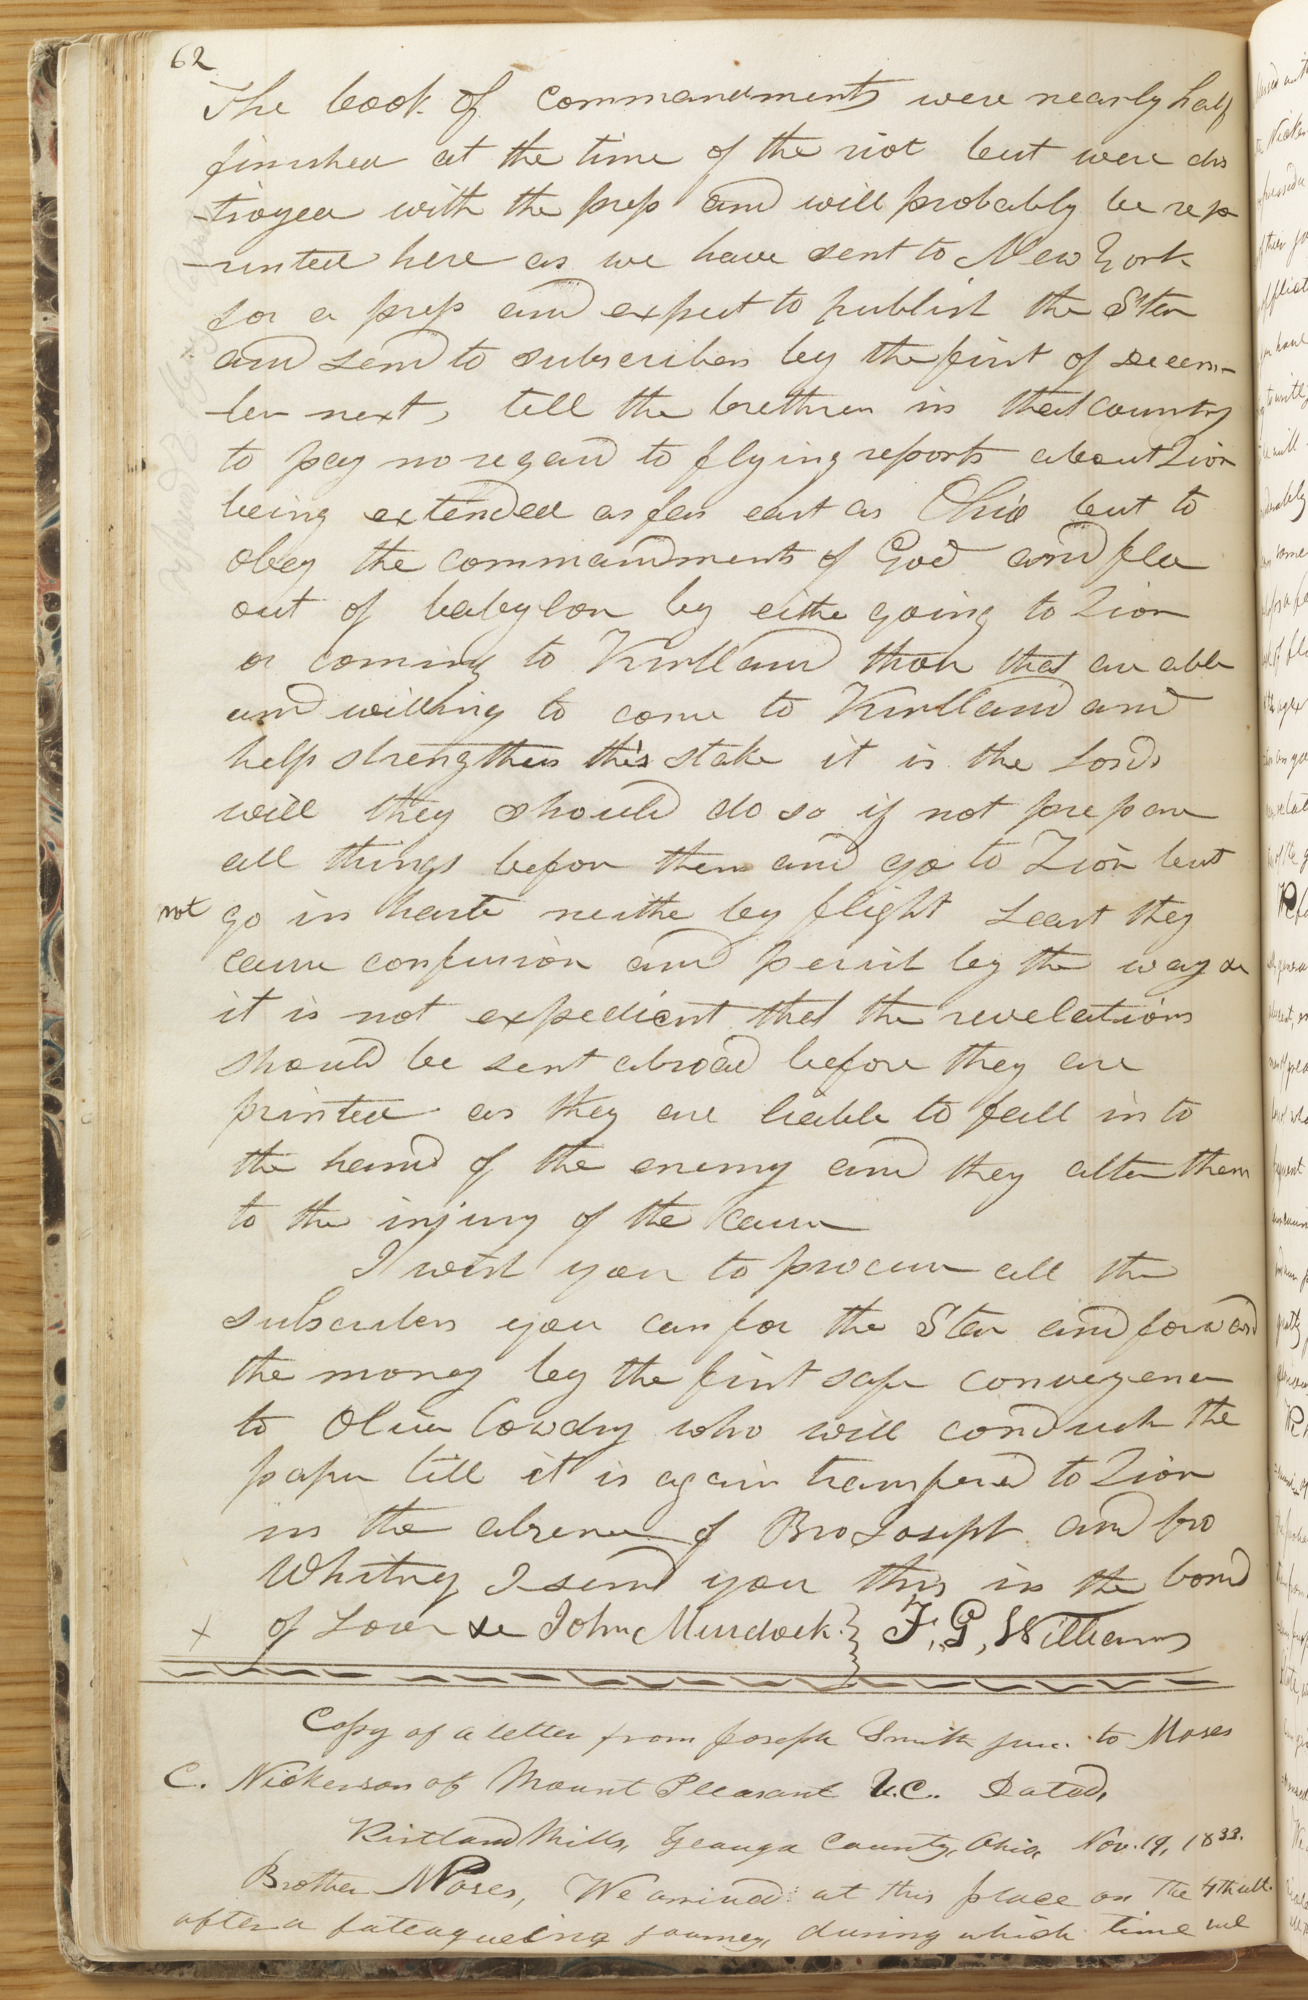 62
The book of commandments were nearly half
finished at the time of the riot but were des
-troyed with the press and will probably be rep
-rinted here as we have sent to New York
for a press and expect to publish the Star
and send to subscribers by the first of decem-
-ber next, tell the brethren in that country
to pay no regard to flying reports about Zion
being extended as far east as Ohio but to
obey the commandments of God and flee
out of babylon by eithe going to Zion
or coming to Kirtland those that are able
and willing to come to Kirtland and
help strengthen this stake it is the Lords
will they should do so if not prepare
all things before them and go to Zion but
not go in haste neithe by flight Least they
cause confusion and perish by the way &c
it is not expedient that the revelations
should be sent abroad before they are
printed as they are liable to fall in to
the hand of the enemy and they alter them
to the injury of the cause
I wish you to procure all the
subscribers you can for the Star and forward
the money by the first safe conveyence
to Oliver Cowdry who will conduct the
paper till it is again transfered to Zion
in the absence of Bro Joseph and bro
Whitney I send you this in the bond
x of Love &c John Murdock } F, G, Williams
Copy of a letter from Joseph Smith jun. to Moses
C. Nickerson of Mount Pleasant U.C. Dated,
Kirtland Mills, Geauga County, Ohio, Nov. 19, 1833.
Brother Moses, We arrived at this place on the 4th ult.
after a fateagueing journey, during which time we